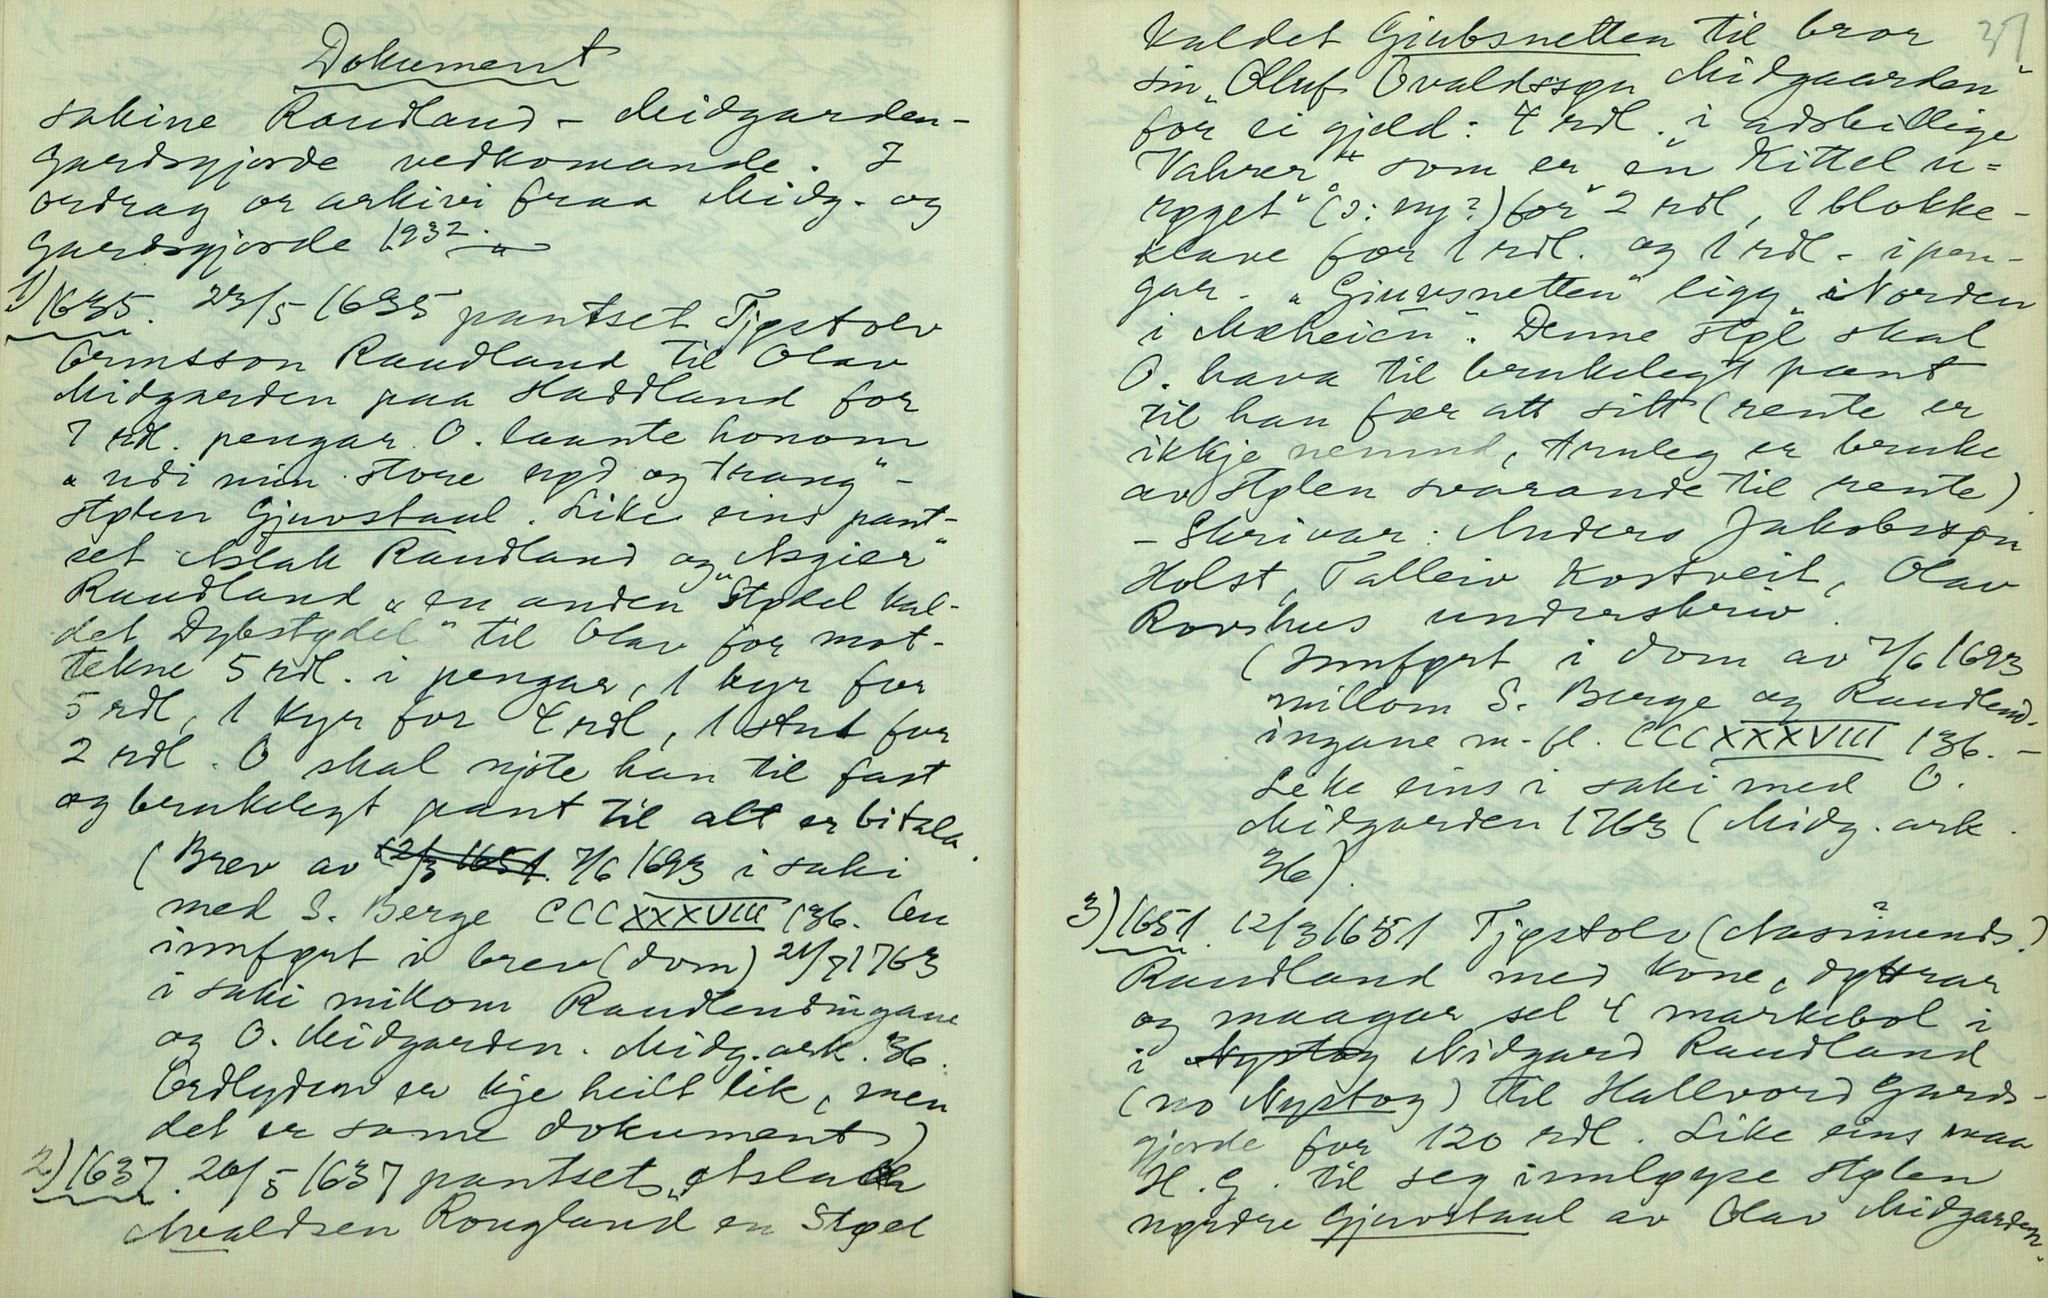 Dokument
sakine Raudland - Midgarden-
Gardsgjorde vedkomande. I
ordrag or arkivi fraa Midg. og
Gardsgjorde 1932.
1) 1635. 23/5 1635 pantset Tjøstolv
Ormsson Raudland til Olav
Midgarden paa Haddland for
7 rdl. pengar O. laante honom
"udi min store nød og trang" -
stølen Gjuvstaul. Like eins pant-
set Aslak Raudland og "Asgier"
Raudland "en anden Stødel kal-
det Dybstødel" til Olav for mot-
tekne 5 rdl. i pengar, 1 kyr for
5 rdl, 1 kyr for 4 rdl, 1 stut for
2 rdl. O skal njote han til fast
og brukelegt pant til alt er bitala.
(Brev av 12/3 1651. 7/6 1693 i saki
med S. Berge CCCXXXVIII 136. Au
innført i brev (dom) 21/9 1763
i saki millom Raudlendingane
og O. Midgarden. Midg. ark. 36.
Ordlyden er kje heilt lik, men
det er same dokument)
2) 1637. 26/5 1637 pantset "Aslack
Avaldsen Rougland" en Støel
kaldet Giubsnetten til bror 37
sin "Olluf Ovaldssøn Midgaarden"
for ei gjeld: 4 rdl. "i adskillige
Vahrer" som er "en Kittel u-
røget" (ɔ: ny?) for 2 rdl, 1 blokke-
klave for 1 rdl. og 1 rdl. i pen-
gar. "Giuvsnetten" ligg "Norden
i Mæheien". Denne støl skal
O. hava til brukelegt pant
til han fær att sitt (rente er
ikkje nemnd, truleg er bruke
av stølen svarande til rente).
- Skrivar: Anders Jakobssøn
Holst, Talleiv Kostveit, Olav
Rovshus underskriv.
(Innført i dom av 7/6 1693
millom S. Berge og Raudlend-
ingane m. fl. CCCXXXVIII 136. -
Like eins i saki med O.
Midgarden 1763 (Midg. ark.
36).
3) 1651. 12/3 1651 Tjøstolv (Aasmunds?)
Raudland med kone, døttrar
og maagar sel 4 markebol i
i Nystog Nidgard Raudland
(no Nystog) til Hallvord Gards-
gjorde for 120 rdl. Like eins maa
H. G. til seg innløyse stølen
nørdre Gjuvstaul av Olav Midgarden.